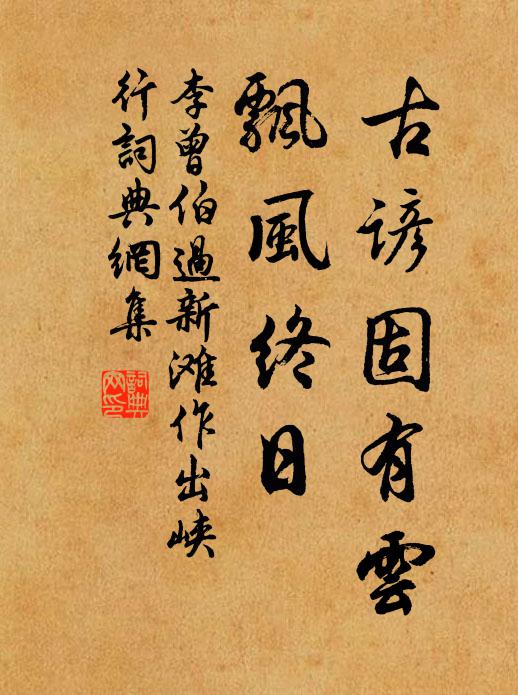 古諺固有雲
飄風終日
李曾伯過新滩作出峽
行詞典網集
詞典網印